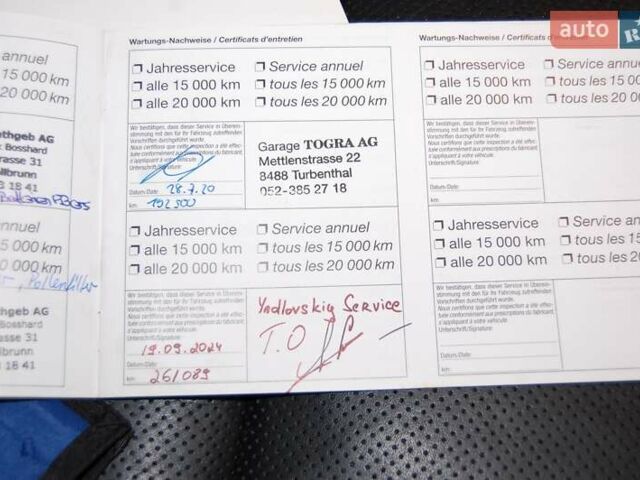 auto
R
annuel
15 000 km
20 000 km
thgeb AG
Bosshard
strasse 31
llbrunn
3 18 41
annuel
5 000 km
0 000 km
Pollenfilter
hgeb AG
Bosshard
sse 31
lbrunn
18 41
Wartungs-Nachweise / Certificats d'entretien
Jahresservice
Service annuel
alle 15 000 km
tous les 15 000 km
alle 20 000 km
tous les 20 000 km
Wir bestätigen, dass dieser Service in Überein-
stimmung mit den für Ihr Fahrzeug zutreffenden
Vorschriften durchgeführt wurde.
Nous certifions que cette inspection a été effec-
tuée conformément aux prescriptions du fabricant,
s'appliquant à votre véhicule.
Unterschrift/Signature:
Datum/Date: 28.7.20
km: 192 500
Garage TOGRA AG
Mettlenstrasse 22
8488 Turbenthal
052-385 27 18
Jahresservice
Service annuel
alle 15 000 km
tous les 15 000 km
alle 20 000 km
tous les 20 000 km
Wir bestätigen, dass dieser Service in Überein-
stimmung mit den für Ihr Fahrzeug zutreffenden
Vorschriften durchgeführt wurde.
Nous certifions que cette inspection a été effec-
tuée conformément aux prescriptions du fabricant,
s'appliquant à votre véhicule.
Unterschrift/Signature:
19.09.2024
Datum/Date:
km: 261089
Yadlovskiy Service
T.O
Wartungs-Nachweise / Certificats d'entretien
Jahresservice
Service annuel
alle 15 000 km
tous les 15 000
alle 20 000 km
tous les 20 000
Wir bestätigen, dass dieser Service in Überein-
stimmung mit den für Ihr Fahrzeug zutreffenden
Vorschriften durchgeführt wurde.
Nous certifions que cette inspection a été effec-
tuée conformément aux prescriptions du fabricant,
s'appliquant à votre véhicule.
Unterschrift/Signature:
Datum/Date:
km:
Jahresservice
Service annu
alle 15 000 km
tous les 15
alle 20 000 km
tous les 20
Wir bestätigen, dass dieser Service in Überein-
stimmung mit den für Ihr Fahrzeug zutreffenden
Vorschriften durchgeführt wurde.
Nous certifions que cette inspection a été effec-
tuée conformément aux prescriptions du fabricant,
s'appliquant à votre véhicule.
Unterschrift/Signature:
Datum/Date:
km: